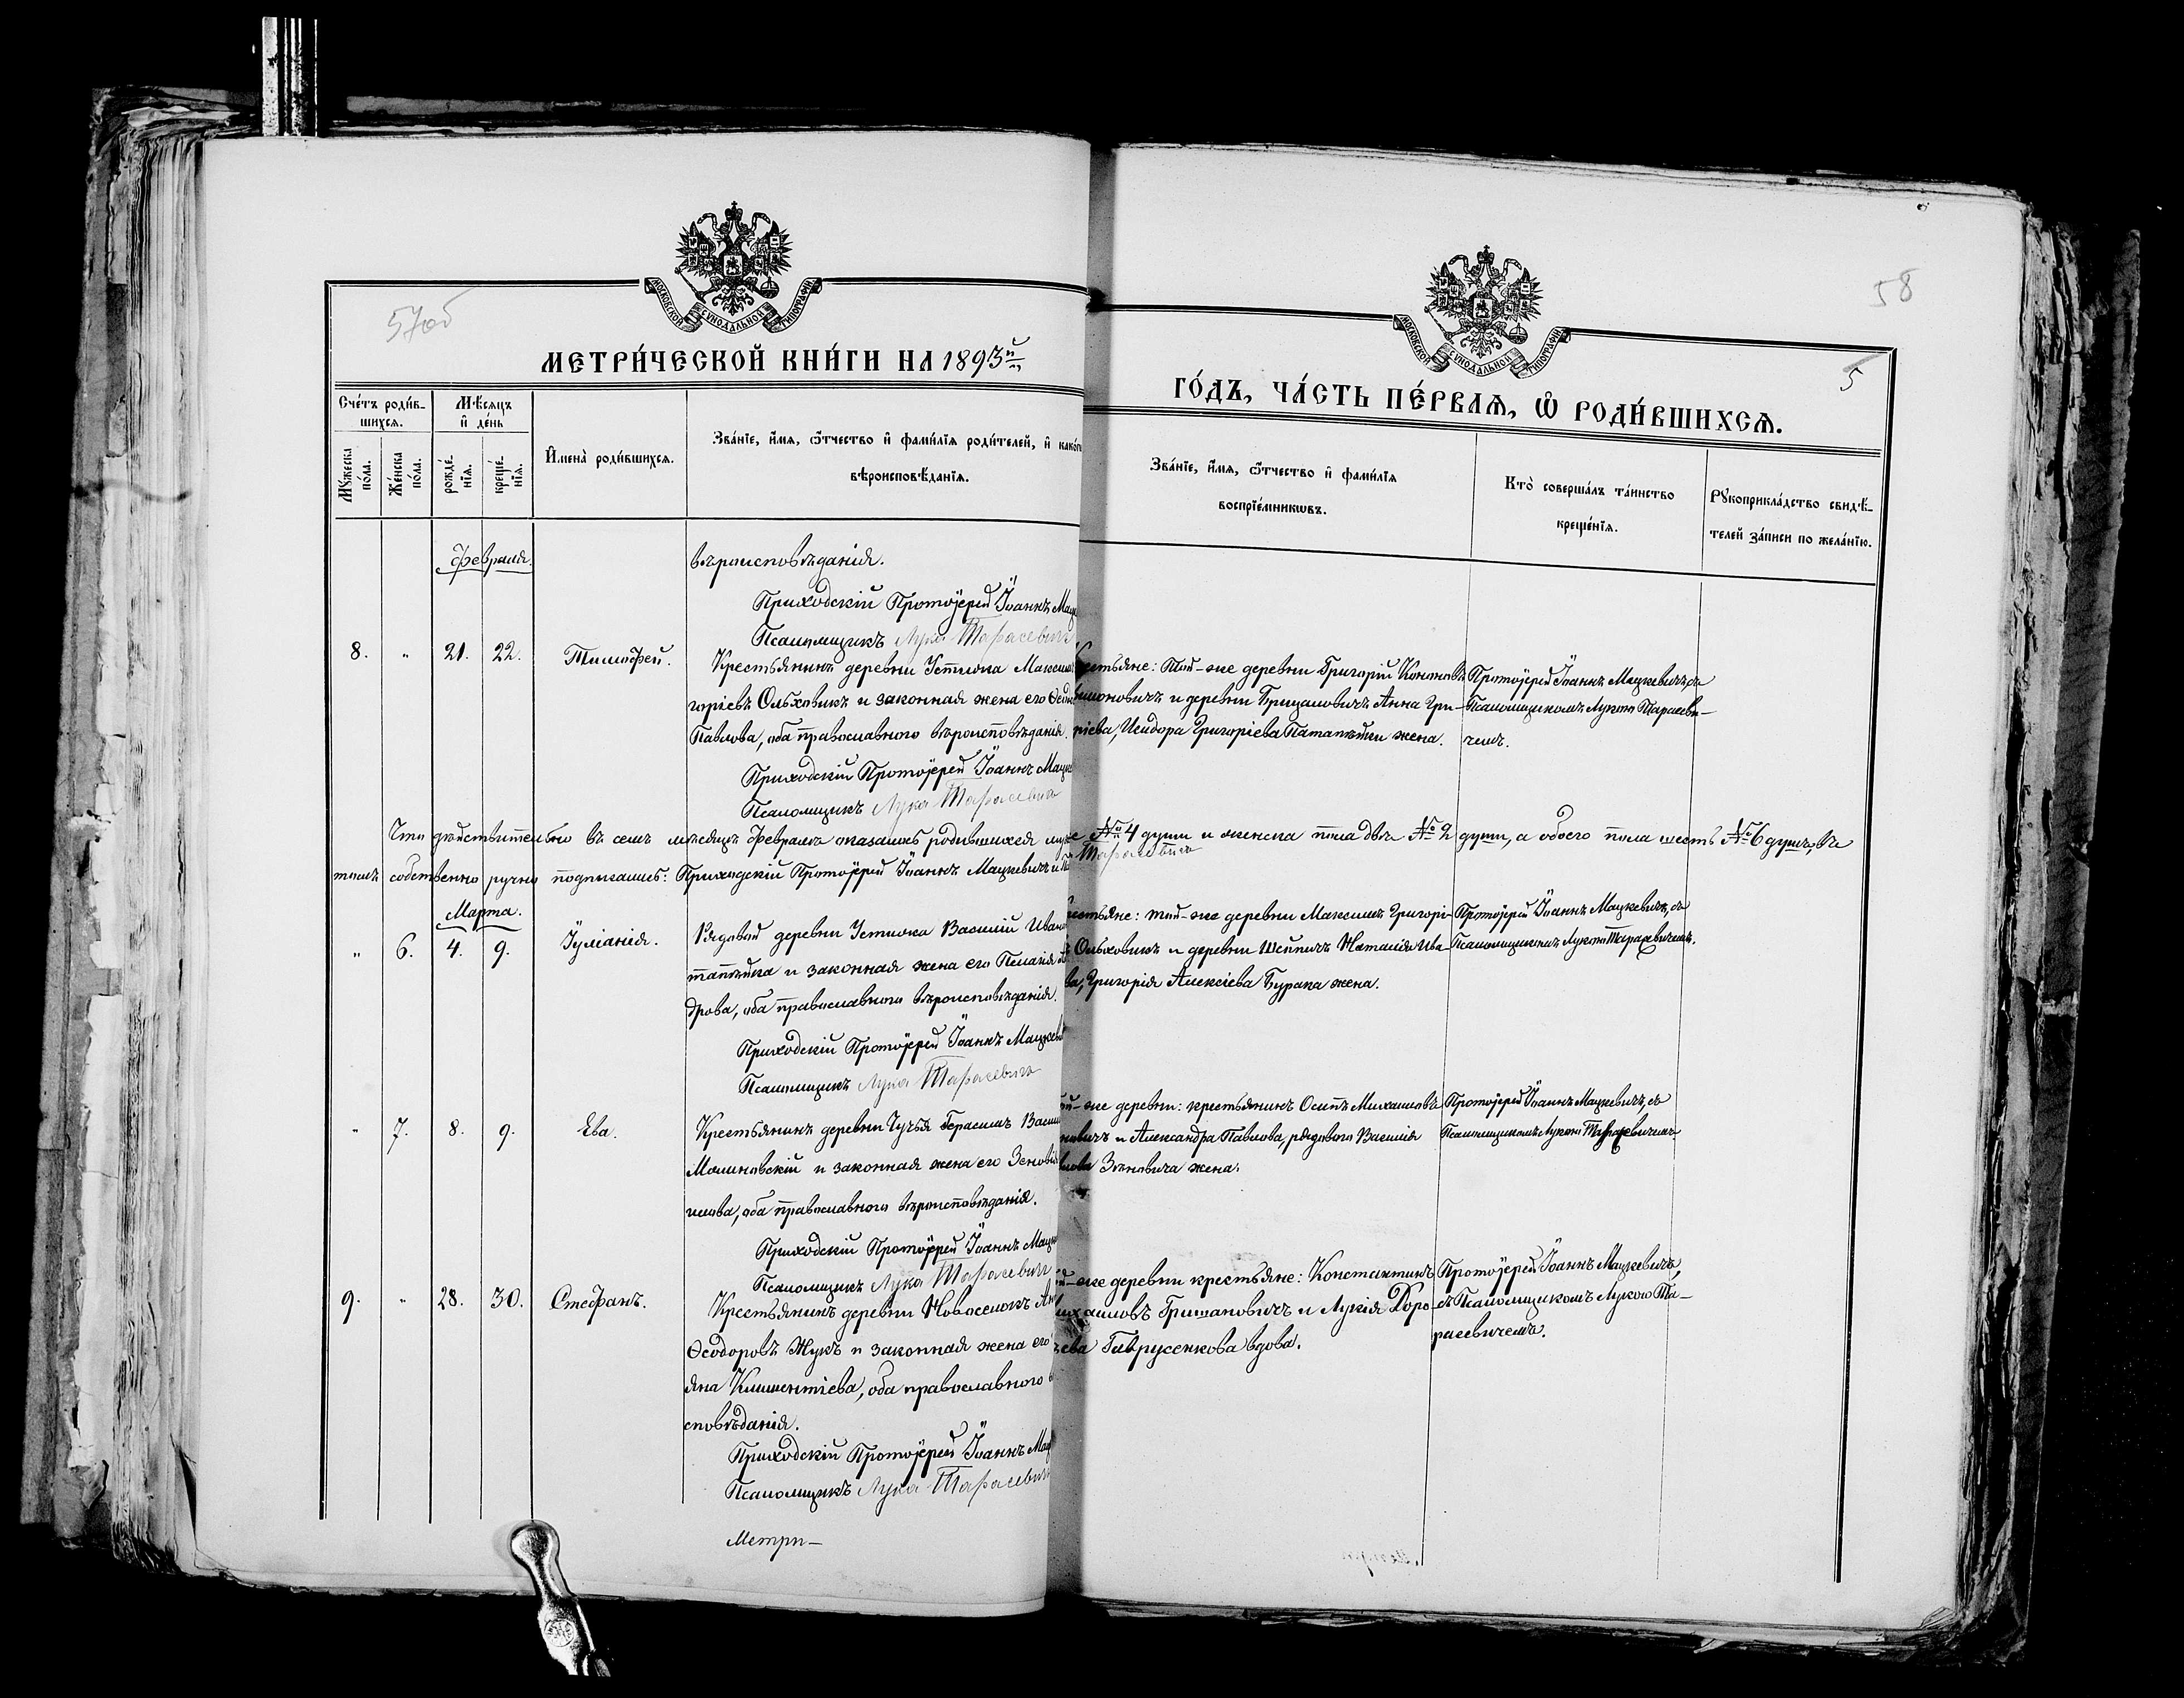 57об
МОСКОВСКОЙ СѴНОДАЛЬНОЙ ТИПОГРАФІИ
МЕТРИ́ЧЕСКОЙ КНИ́ГИ НА 1893й
Сче́тъ роди́в-
шихсѧ.
Мѣ́сѧцъ
и҆ де́нь
Мꙋ́жеска
по́ла.
Же́нска
по́ла.
рожде́-
нїѧ.
креще́-
нїѧ.
И҆мена̀ роди́вшихсѧ.
Зва́нїе, и҆́мѧ, ѻ҆́тчество и҆ фами́лїѧ роди́телей, и҆ како́гѡ
вѣроисповѣ́данїѧ.
Февраля.
вѣроисповѣданія.
Приходскій Протоіерей Іоаннъ Мацк
Псаломщикъ Лука Тарасевичъ
8. " 21. 22. Тимоѳей.
Крестьянинъ деревни Устлока Максимъ
горіевъ Ольховикъ и законная жена его
Павлова, оба православнаго вѣроисповѣданія.
Приходскій Протоіерей Іоаннъ Мацк
Псаломщикъ Лука Тарасевичъ
Что дѣйствительно въ семъ мѣсяцѣ Февралѣ оказалось родившихся
томъ собственно ручно подписались: Приходскій Протоіерей Іоаннъ Мацкевичъ и
Марта.
" 6. 4. 9. Іуліанія.
Рядовой деревни Устлока Василій Ивано
тапѣйка и законная жена его Пелагія
дрова, оба православнаго вѣроисповѣданія.
Приходскій Протоіерей Іоаннъ Мацкеви
Псаломщикъ Лука Тарасевичъ
" 7. 8. 9. Ева.
Крестьянинъ деревни Чучья Герасимъ Васи
Малиновскій и законная жена его Зеновія
илова, оба православнаго вѣроисповѣданія.
Приходскій Протоіерей Іоаннъ Мацк
Псаломщикъ Лука Тарасевич
9. " 28. 30. Стефанъ.
Крестьянинъ деревни Новоселокъ Ан
Ѳеодоровъ Жукъ и законная жена его
яна Климентіева, оба православнаго
сповѣданія.
Приходскій Протоіерей Іоаннъ Мац
Псаломщикъ Лука Тарасевич
Метри-
58
МОСКОВСКОЙ СѴНОДАЛЬНОЙ ТИПОГРАФІИ
5
ГО́ДЪ, ЧА́СТЬ ПЕ́РВАѦ, Ѡ҆ РОДИ́ВШИХСѦ.
Зва́нїе, и҆́мѧ, ѻ҆́тчество и҆ фами́лїѧ
воспрїе́мникѡвъ.
Кто̀ соверша́лъ та́инство
креще́нїѧ.
Рꙋкоприкла́дство свидѣ́-
телей за́писи по жела́нїю.
естьяне: той-же деревни Григорій Кононовъ
моновичъ и деревни Грицаловичъ Анна Гри-
ріева, Исидора Григоріева Патапѣйки жена.
Протоіерей Іоаннъ Мацкевичъ, съ
Псаломщикомъ Лукою Тарасеви-
чемъ.
№ 4 души и женска пола двѣ № 2 души, а обоего пола шесть № 6 душъ, въ
Тарасевичъ
естьяне: той-же деревни Максимъ Григорі-
Ольховикъ и деревни Шейпичъ Наталія Ива-
ва, Григорія Алексіева Бурака жена.
Протоіерей Іоаннъ Мацкевичъ, съ
Псаломщикомъ Лукою Тарасевичемъ.
ой-же деревни: крестьянинъ Осипъ Михаиловъ
новичъ и Александра Павлова, рядового Василія
Зѣновича жена.
Протоіерей Іоаннъ Мацкевичъ, съ
Псаломщикомъ Лукою Тарасевичемъ.
й-же деревни крестьяне: Константинъ
ихаиловъ Гришановичъ и Лукія Доро-
ѣева Гаврусенкова вдова.
Протоіерей Іоаннъ Мацкевичъ,
съ Псаломщикомъ Лукою Та-
расевичемъ.